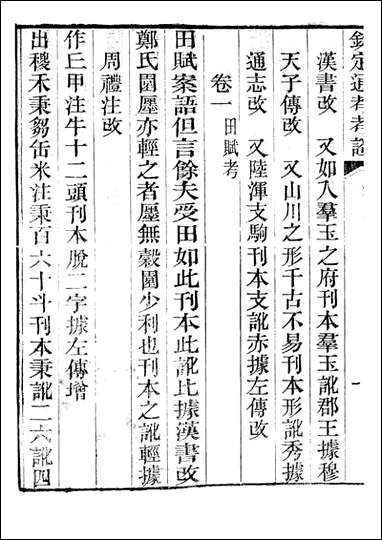 欽定通考考證
漢書改　又如入羣玉之府刊本羣玉訛郡王據穆
天子傳改　又山川之形千古不易刊本形訛秀據
通志改　又陸渾支駒刊本支訛赤據左傳改
卷一田賦考
田賦案語但言餘夫受田如此刊本此訛比據漢書改
鄭氏園廛亦輕之者廛無穀園少利也刊本之訛輕據
周禮注改
作丘甲注牛十二頭刊本脫二字據左傳增
出稷禾秉芻缶米注秉百六十斗刊本秉訛二六訛四